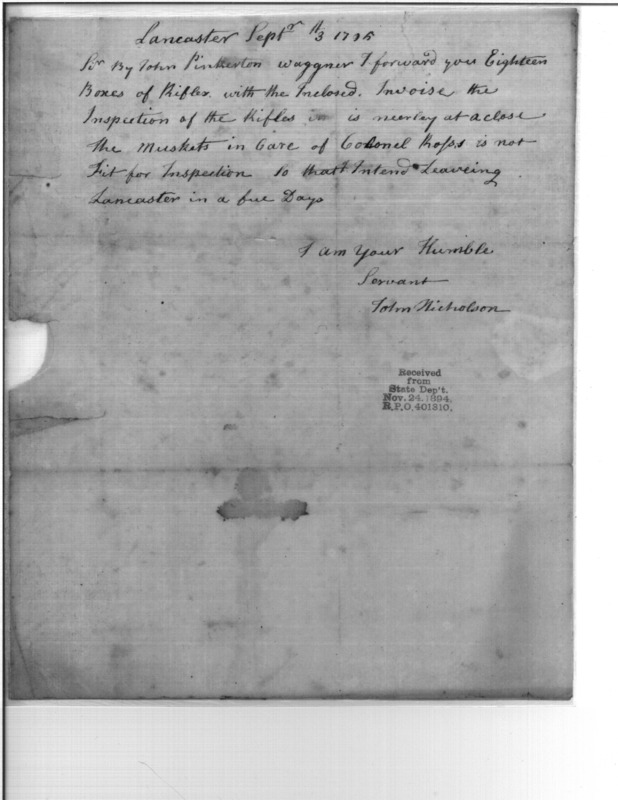 Lancaster Septr 3 1795
Sir By John Pinkerton waggner I forward you Eighteen
Boxes of Rifles with the Inclosed. Invoise the
Inspection of the Rifles is neerley at a close
the muskets in Care of Colonel Ross is not
Fit for Inspection so that Intend Leaveing
Lancaster in a fue Days
I am Your Humble
Servant
John Nicholson
Received
from
State Dep't.
Nov. 24. 1894.
R.P.O. 401310.